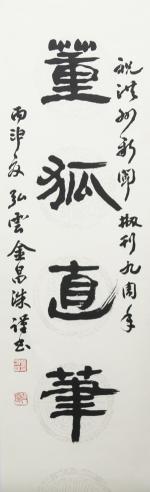 祝洪州新聞刊九周年
董狐直筆
丙申夏 弘雲 金昌洙 謹書